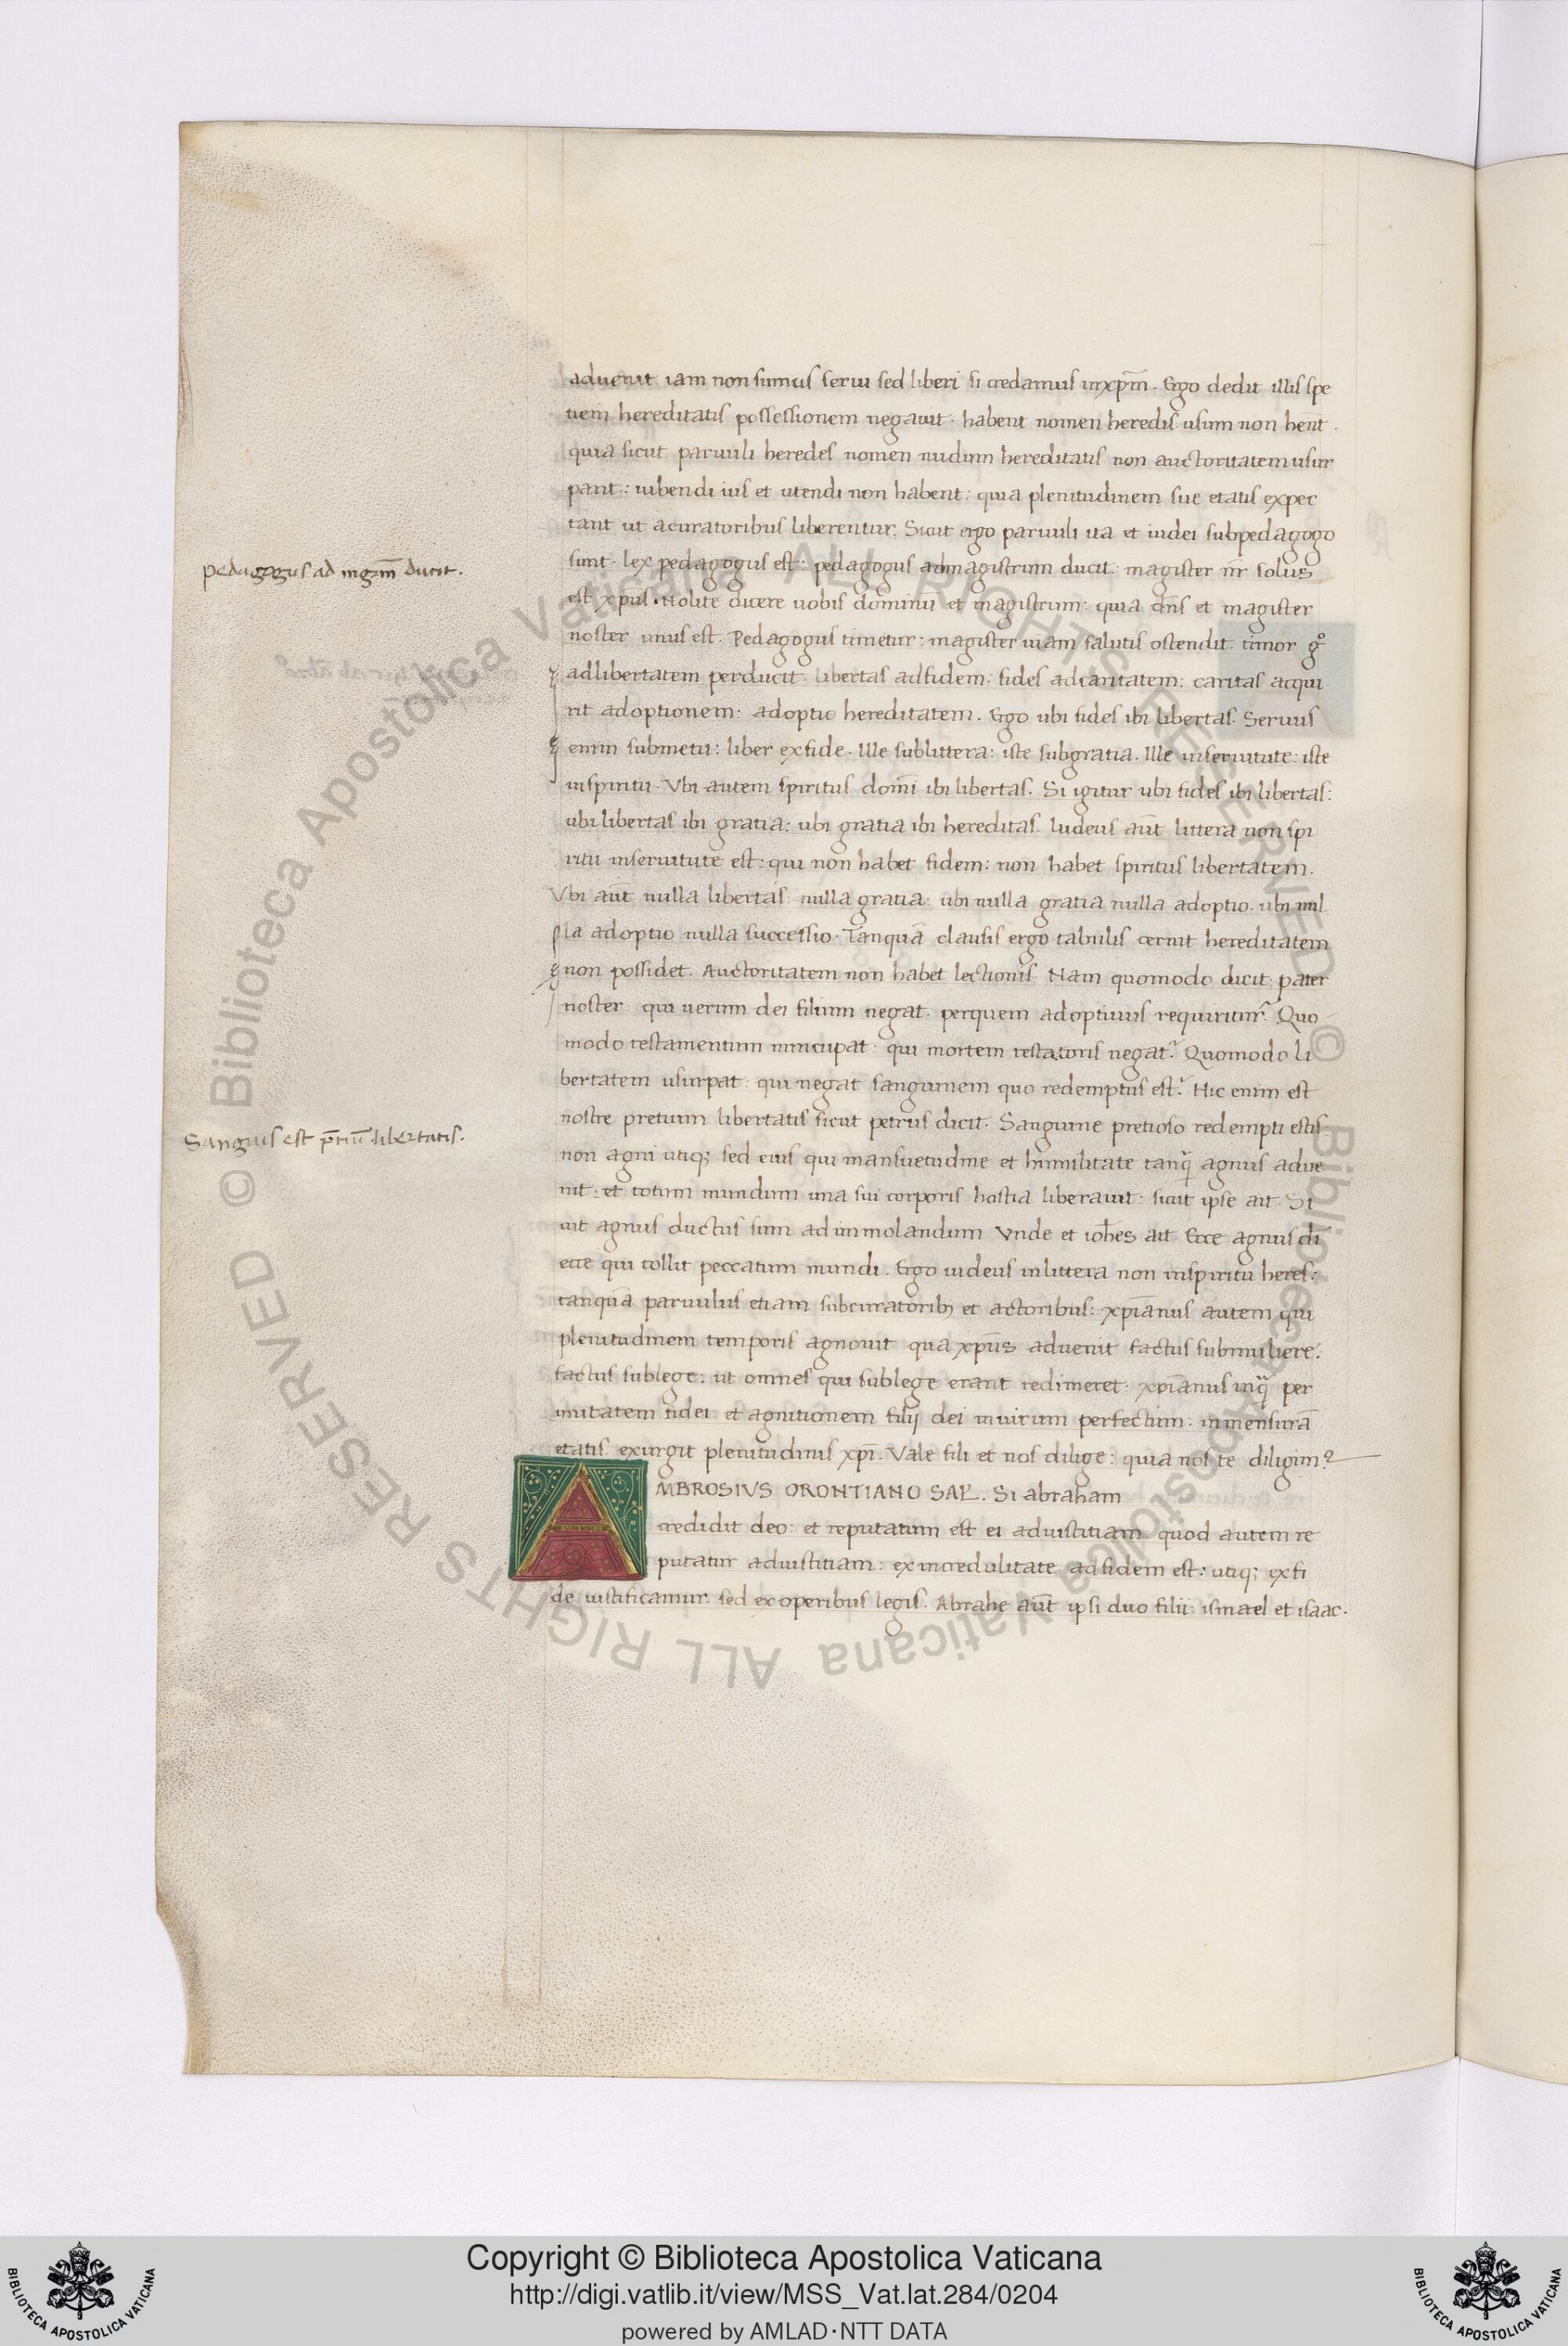 advenit. iam non sumus serui sed liberi si credamus inxp̄m. Ergo dedit illis spe
tiem hereditatis possessionem negauit. habent nomen heredis. usum non hent.
quia sicut paruuli heredes nomen nudum hereditatis non auctoritatem usur
pant: iubendi ius et utendi non habent: quia plenitudinem sue etatis expec
tant ut acuratoribus liberentur. Sicut ergo paruuli ita et iudei subpedagogo
sunt. lex pedagogus est: pedagogus admagistrum ducit: magister nr̄ solus
pedagogus ad mgr̄m ducit.
est xp̄us. Nolite dicere uobis dominū et magistrum: quia dn̄s et magister
noster unus est. Pedagogus timetur: magister uiam salutis ostendit. timor g°
adlibertatem perducit. libertas adfidem: fides adcaritatem: caritas acqui
rit adoptionem: adoptio hereditatem. Ergo ubi fides ibi libertas. Seruus
enim submetu: liber exfide. Ille sublittera: iste subgratia. Ille inseruitute: iste
inspiritu. Vbi autem spiritus domī ibi libertas. Si igitur ubi fides ibi libertas:
ubi libertas ibi gratia: ubi gratia ibi hereditas. Iudeus aūt littera non spi
ritu inseruitute est: qui non habet fidem: non habet spiritus libertatem.
Vbi aūt nulla libertas: nulla gratia: ubi nulla gratia nulla adoptio. ubi nul
la adoptio nulla successio. Tanquā clausis ergo tabulis cernit hereditatem
non possidet. Auctoritatem non habet lectionis. Nam quomodo dicit: pater
noster qui uerum dei filium negat. perquem adoptiuus requiritur? Quo
modo testamentum nuncupat: qui mortem testatoris negat? Quomodo li
bertatem usurpat: qui negat sanguinem quo redemptus est? Hic enim est
nostre pretium libertatis sicut petrus dicit. Sanguine pretioso redempti estis
Sanguis est p̄tiū libertatis.
non agni utiq; sed eius qui mansuetudine et humilitate tanq̄ agnus adue
nit: et totum mundum una sui corporis hostia liberauit: sicut ipse ait. Si
cut agnus ductus sum ad immolandum. Vnde et ioh̄es ait. Ecce agnus dī
ecce qui tollit peccatum mundi. Ergo iudeus inlittera non inspiritu heres:
tanquā paruulus etiam subcuratorib; et actoribus: xp̄ianus autem qui
plenitudinem temporis agnouit qua xp̄us advenit factus submuliere.
factus sublege: ut omnes qui sublege erant redimeret. xp̄ianus inq̄ per
unitatem fidei et agnitionem filij dei inuirum perfectum: inmensurā
etatis exurgit plenitudinis xp̄i. Vale fili et nos dilige: quia nos te diligim9
AMBROSIVS ORONTIANO SAL̄. Si abraham
credidit deo: et reputatum est ei adiustitiam. quod autem re
putatur adiustitiam: ex incredulitate adfidem est: utiq; exfi
de iustificamur. sed ex operibus legis. Abrahe aūt ipsi duo filii: ismael et isaac.
© Biblioteca Apostolica Vaticana ALL RIGHTS RESERVED © Biblioteca Apostolica Vaticana ALL RIGHTS RESERVED
Copyright © Biblioteca Apostolica Vaticana
http://digi.vatlib.it/view/MSS_Vat.lat.284/0204
powered by AMLAD·NTT DATA
BIBLIOTECA APOSTOLICA VATICANA
BIBLIOTECA APOSTOLICA VATICANA